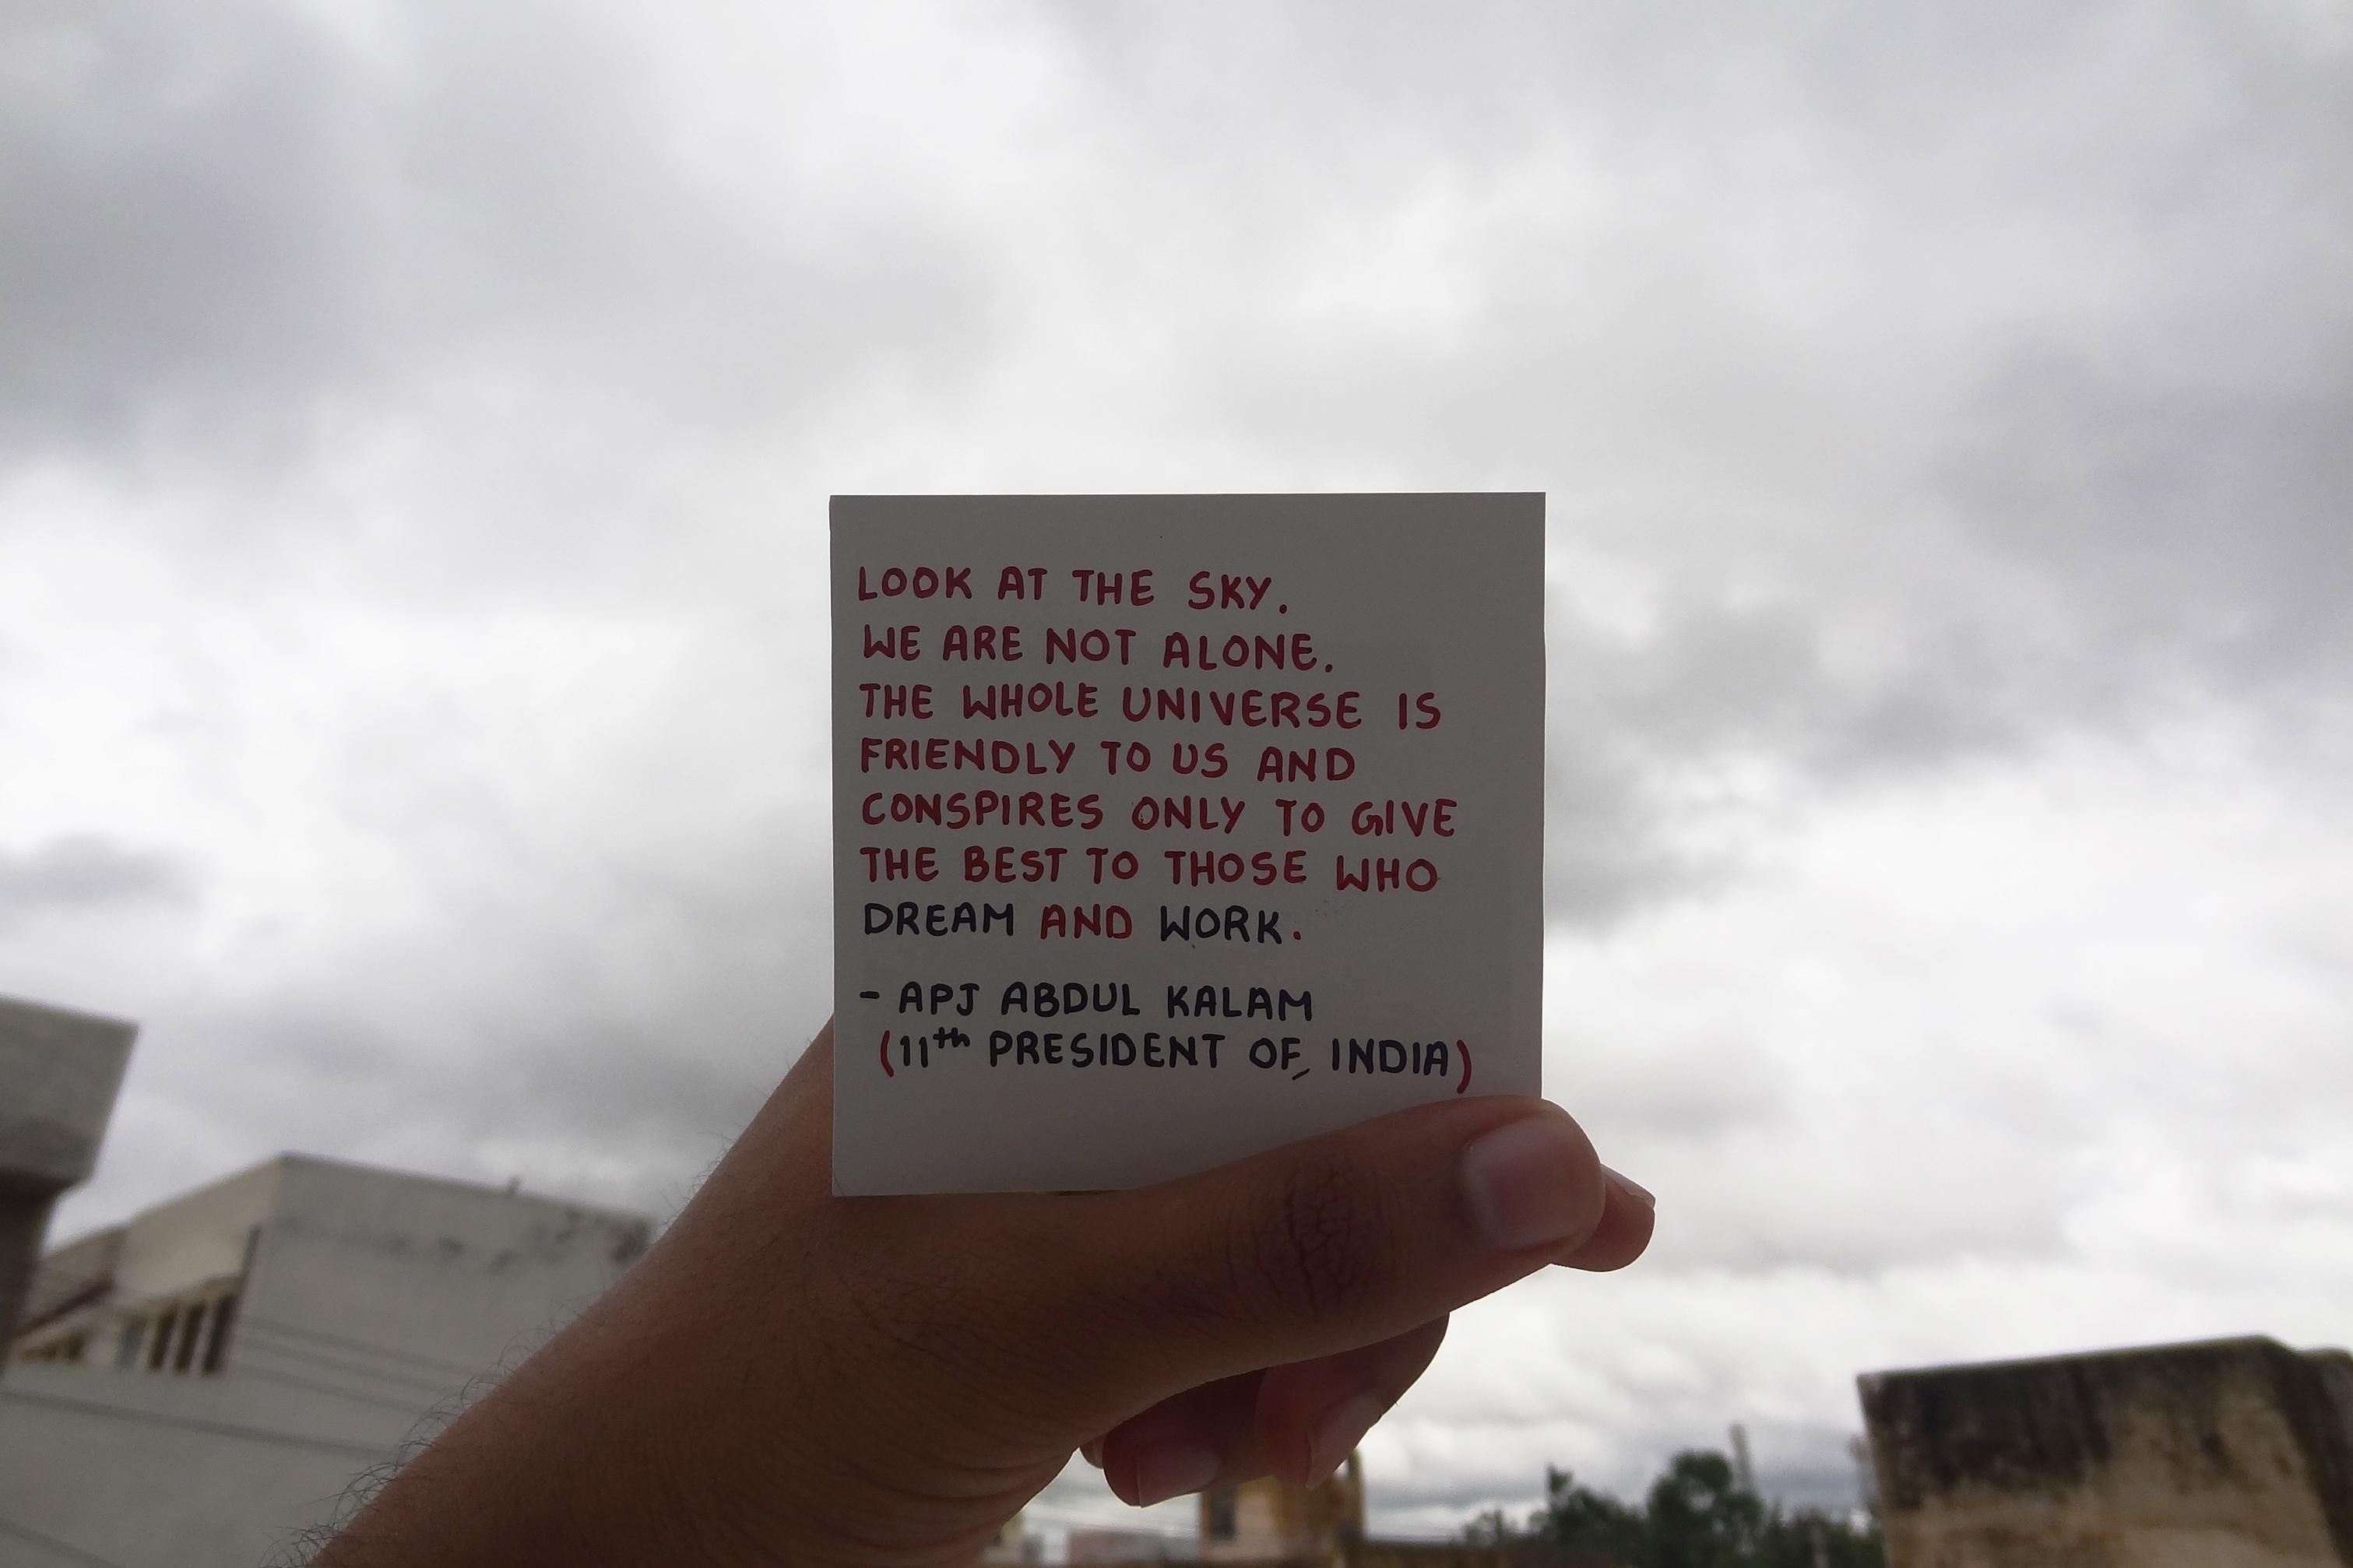 LOOK AT THE SKY.
WE ARE NOT ALONE.
THE WHOLE UNIVERSE IS
FRIENDLY TO US AND
CONSPIRES ONLY TO GIVE
THE BEST TO THOSE WHO
DREAM AND WORK.
- APJ ABDUL KALAM
(11th PRESIDENT OF INDIA)